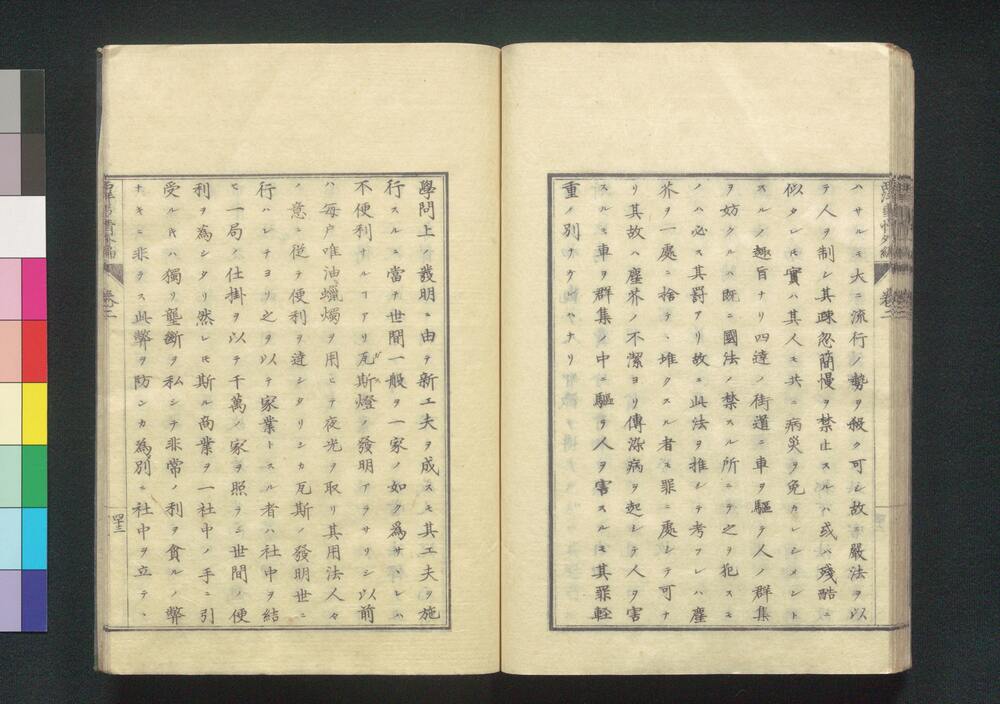 ハサルモ大ニ流行ノ勢ヲ殺ク可シ故ニ嚴法ヲ以
テ人ヲ制シ其疎忽簡慢ヲ禁止スルハ或ハ殘酷ニ
似タレ𪜈實ハ其人モ共ニ病災ヲ免カレシメント
スルノ趣旨ナリ四達ノ街道ニ車ヲ驅テ人ノ群集
ヲ妨クルハ既ニ國法ノ禁スル所ニテ之ヲ犯スモ
ノハ必ス其罰アリ故ニ此法ヲ推シテ考フレハ塵
芥ヲ一處ニ捨テヽ堆クスル者モ罪ニ處シテ可ナ
リ其故ハ塵芥ノ不潔ヨリ傳染病ヲ起シテ人ヲ害
スルモ車ヲ群集ノ中ニ驅テ人ヲ害スルモ其罪輕
重ノ別ナケレハナリ
學問上ノ發明ニ由テ新工夫ヲ成スモ其工夫ヲ施
行スルニ當テ世間一般ヲ一家ノ如ク爲サヽレハ
不便利ナルヿアリ瓦斯燈ノ發明アラサリシ以前
ハ毎戸唯油蠟燭ヲ用ヒテ夜光ヲ取リ其用法人々
ノ意ニ從テ便利ヲ達シタリシカ瓦斯ノ發明世ニ
行ハレテヨリ之ヲ以テ家業トスル者ハ社中ヲ結
ヒ一局ノ仕掛ヲ以テ千萬ノ家ヲ照ラシ世間ノ便
利ヲ為シタリ然レ𪜈斯ル商業ヲ一社中ノ手ニ引
受ルキハ獨リ壟斷ヲ私シテ非常ノ利ヲ貪ルノ弊
ナキニ非ラス此弊ヲ防ンカ為別ニ社中ヲ立テヽ
卷二
四十三